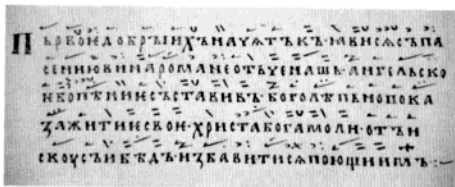 Пьрвоѥдобрыихъначѧтъкъ·ꙗвисѧсъпа
сениювинароманеотьченашь·ангельско
ѥбопѣниѥсъставивъ·боголѣпьнопока
зажитиѥсвоѥ·христабогамоли·отъи
скоусъибѣдъ·избавитисѧпоющиимъ: